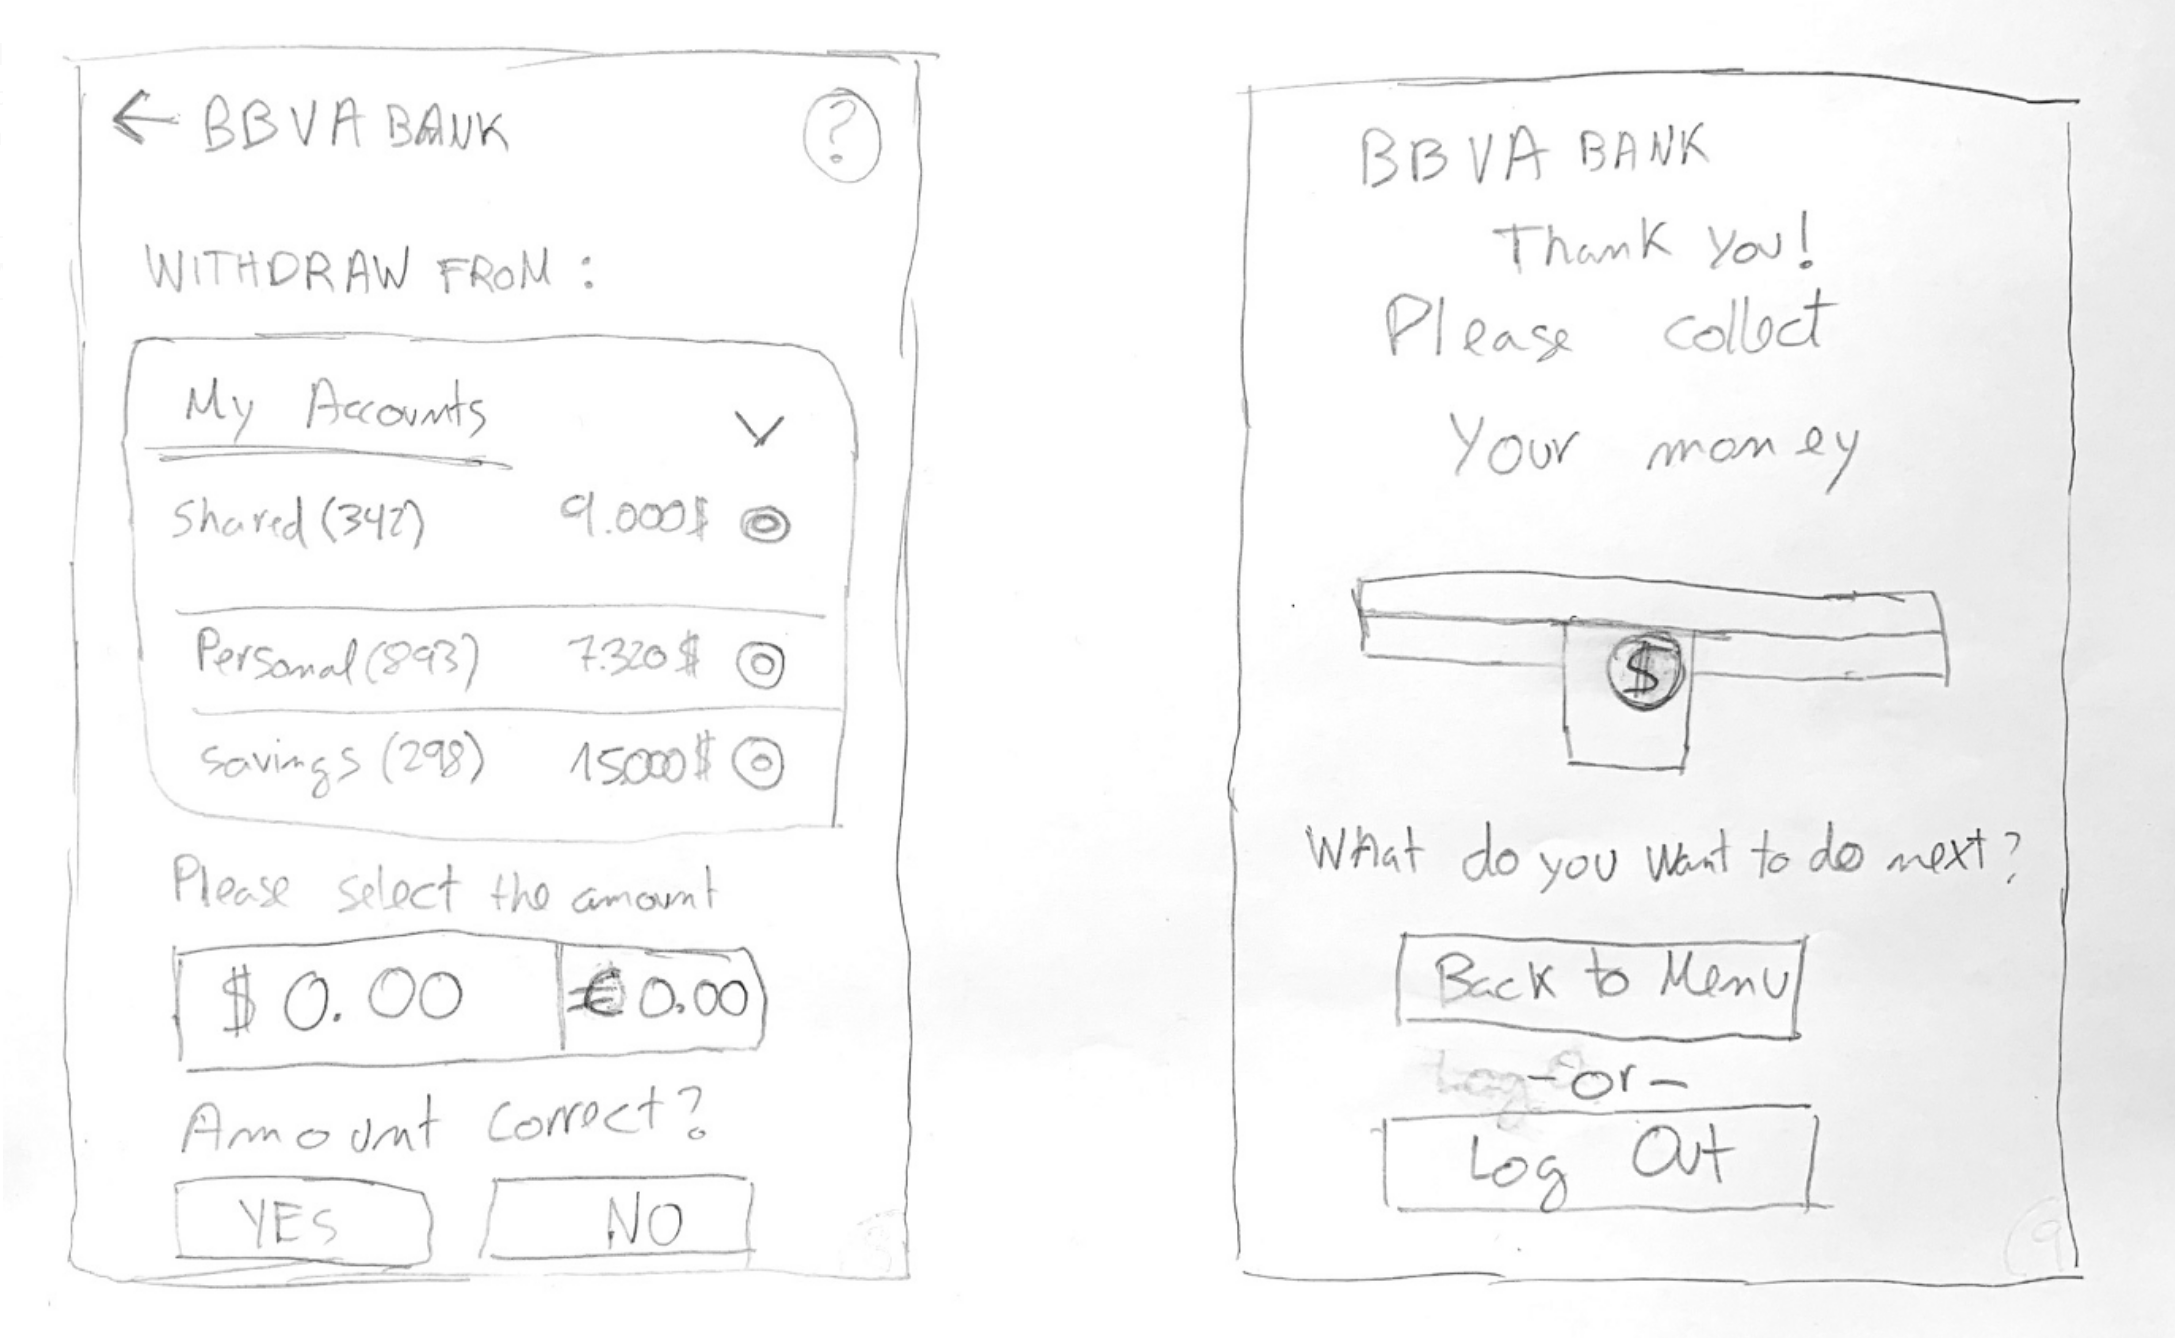 ← BBVA BANK ?
WITHDRAW FROM :
My Accounts
Shared (342) 9.000$
Personal (893) 7.320$
Savings (298) 15000$
Please select the amount
$ 0.00 =€ 0.00
Amount correct?
YES NO
BBVA BANK
Thank you!
Please collect
Your money
$
What do you want to do next?
Back to Menu
- or -
Log Out
9